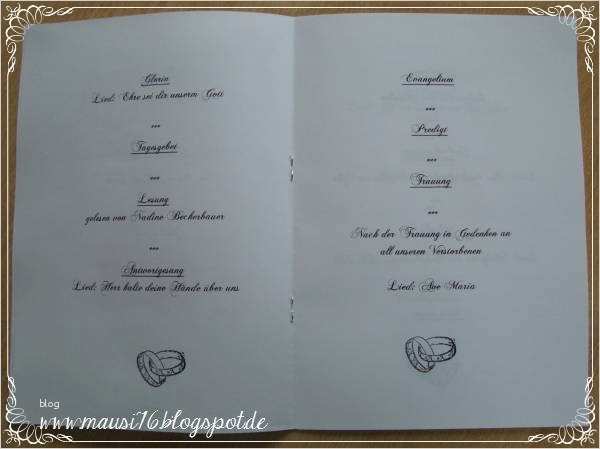 Gloria
Lied: Ehre sei dir unserm Gott
***
Tagesgebet
***
Lesung
gelesen von Nadine Becherbauer
***
Antwortgesang
Lied: Herr halte deine Hände über uns
Evangelium
***
Predigt
***
Trauung
***
Nach der Trauung in Gedenken an
all unseren Verstorbenen
Lied: Ave Maria
blog
www.mausi76blogspot.de